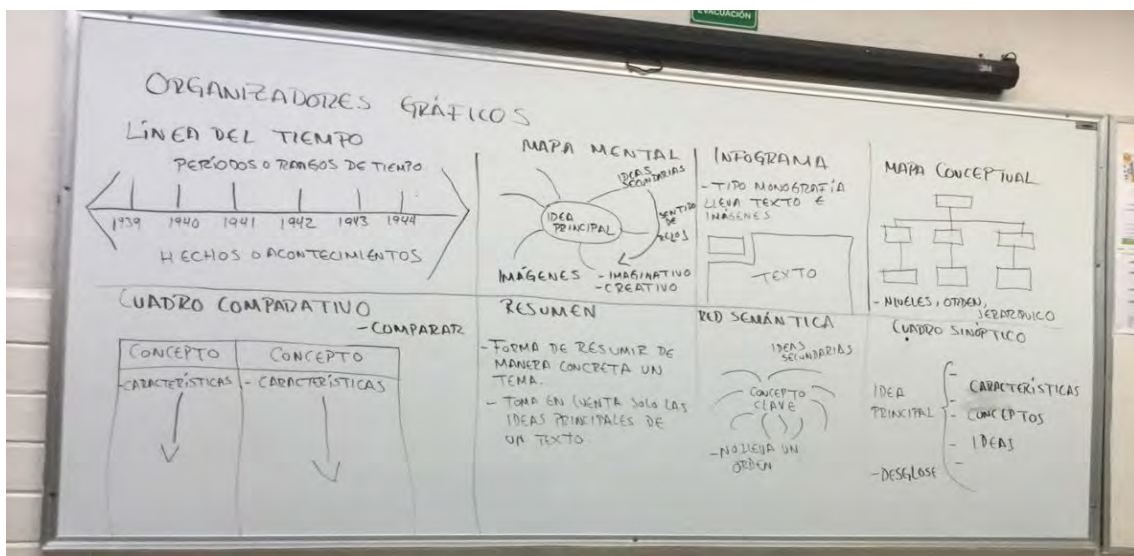 EVACUACIÓN
ORGANIZADORES GRÁFICOS
LÍNEA DEL TIEMPO
PERÍODOS O RANGOS DE TIEMPO
1939 1940 1941 1942 1943 1944
HECHOS O ACONTECIMIENTOS
MAPA MENTAL
IDEAS
SECUNDARIAS
IDEA
PRINCIPAL
SENTIDO
DE
RELOJ
IMÁGENES
- IMAGINATIVO
- CREATIVO
INFOGRAMA
- TIPO MONOGRAFÍA
LLEVA TEXTO E
IMÁGENES
TEXTO
MAPA CONCEPTUAL
- NIVELES, ORDEN,
JERARQUICO
CUADRO COMPARATIVO
- COMPARAR
CONCEPTO CONCEPTO
- CARACTERÍSTICAS - CARACTERÍSTICAS
RESUMEN
- FORMA DE RESUMIR DE
MANERA CONCRETA UN
TEMA.
- TOMA EN CUENTA SOLO LAS
IDEAS PRINCIPALES DE
UN TEXTO.
RED SEMÁNTICA
IDEAS
SECUNDARIAS
CONCEPTO
CLAVE
- NO LLEVA UN
ORDEN
CUADRO SINÓPTICO
IDEA
PRINCIPAL
-
- CARACTERÍSTICAS
- CONCEPTOS
- IDEAS
-
- DESGLOSE